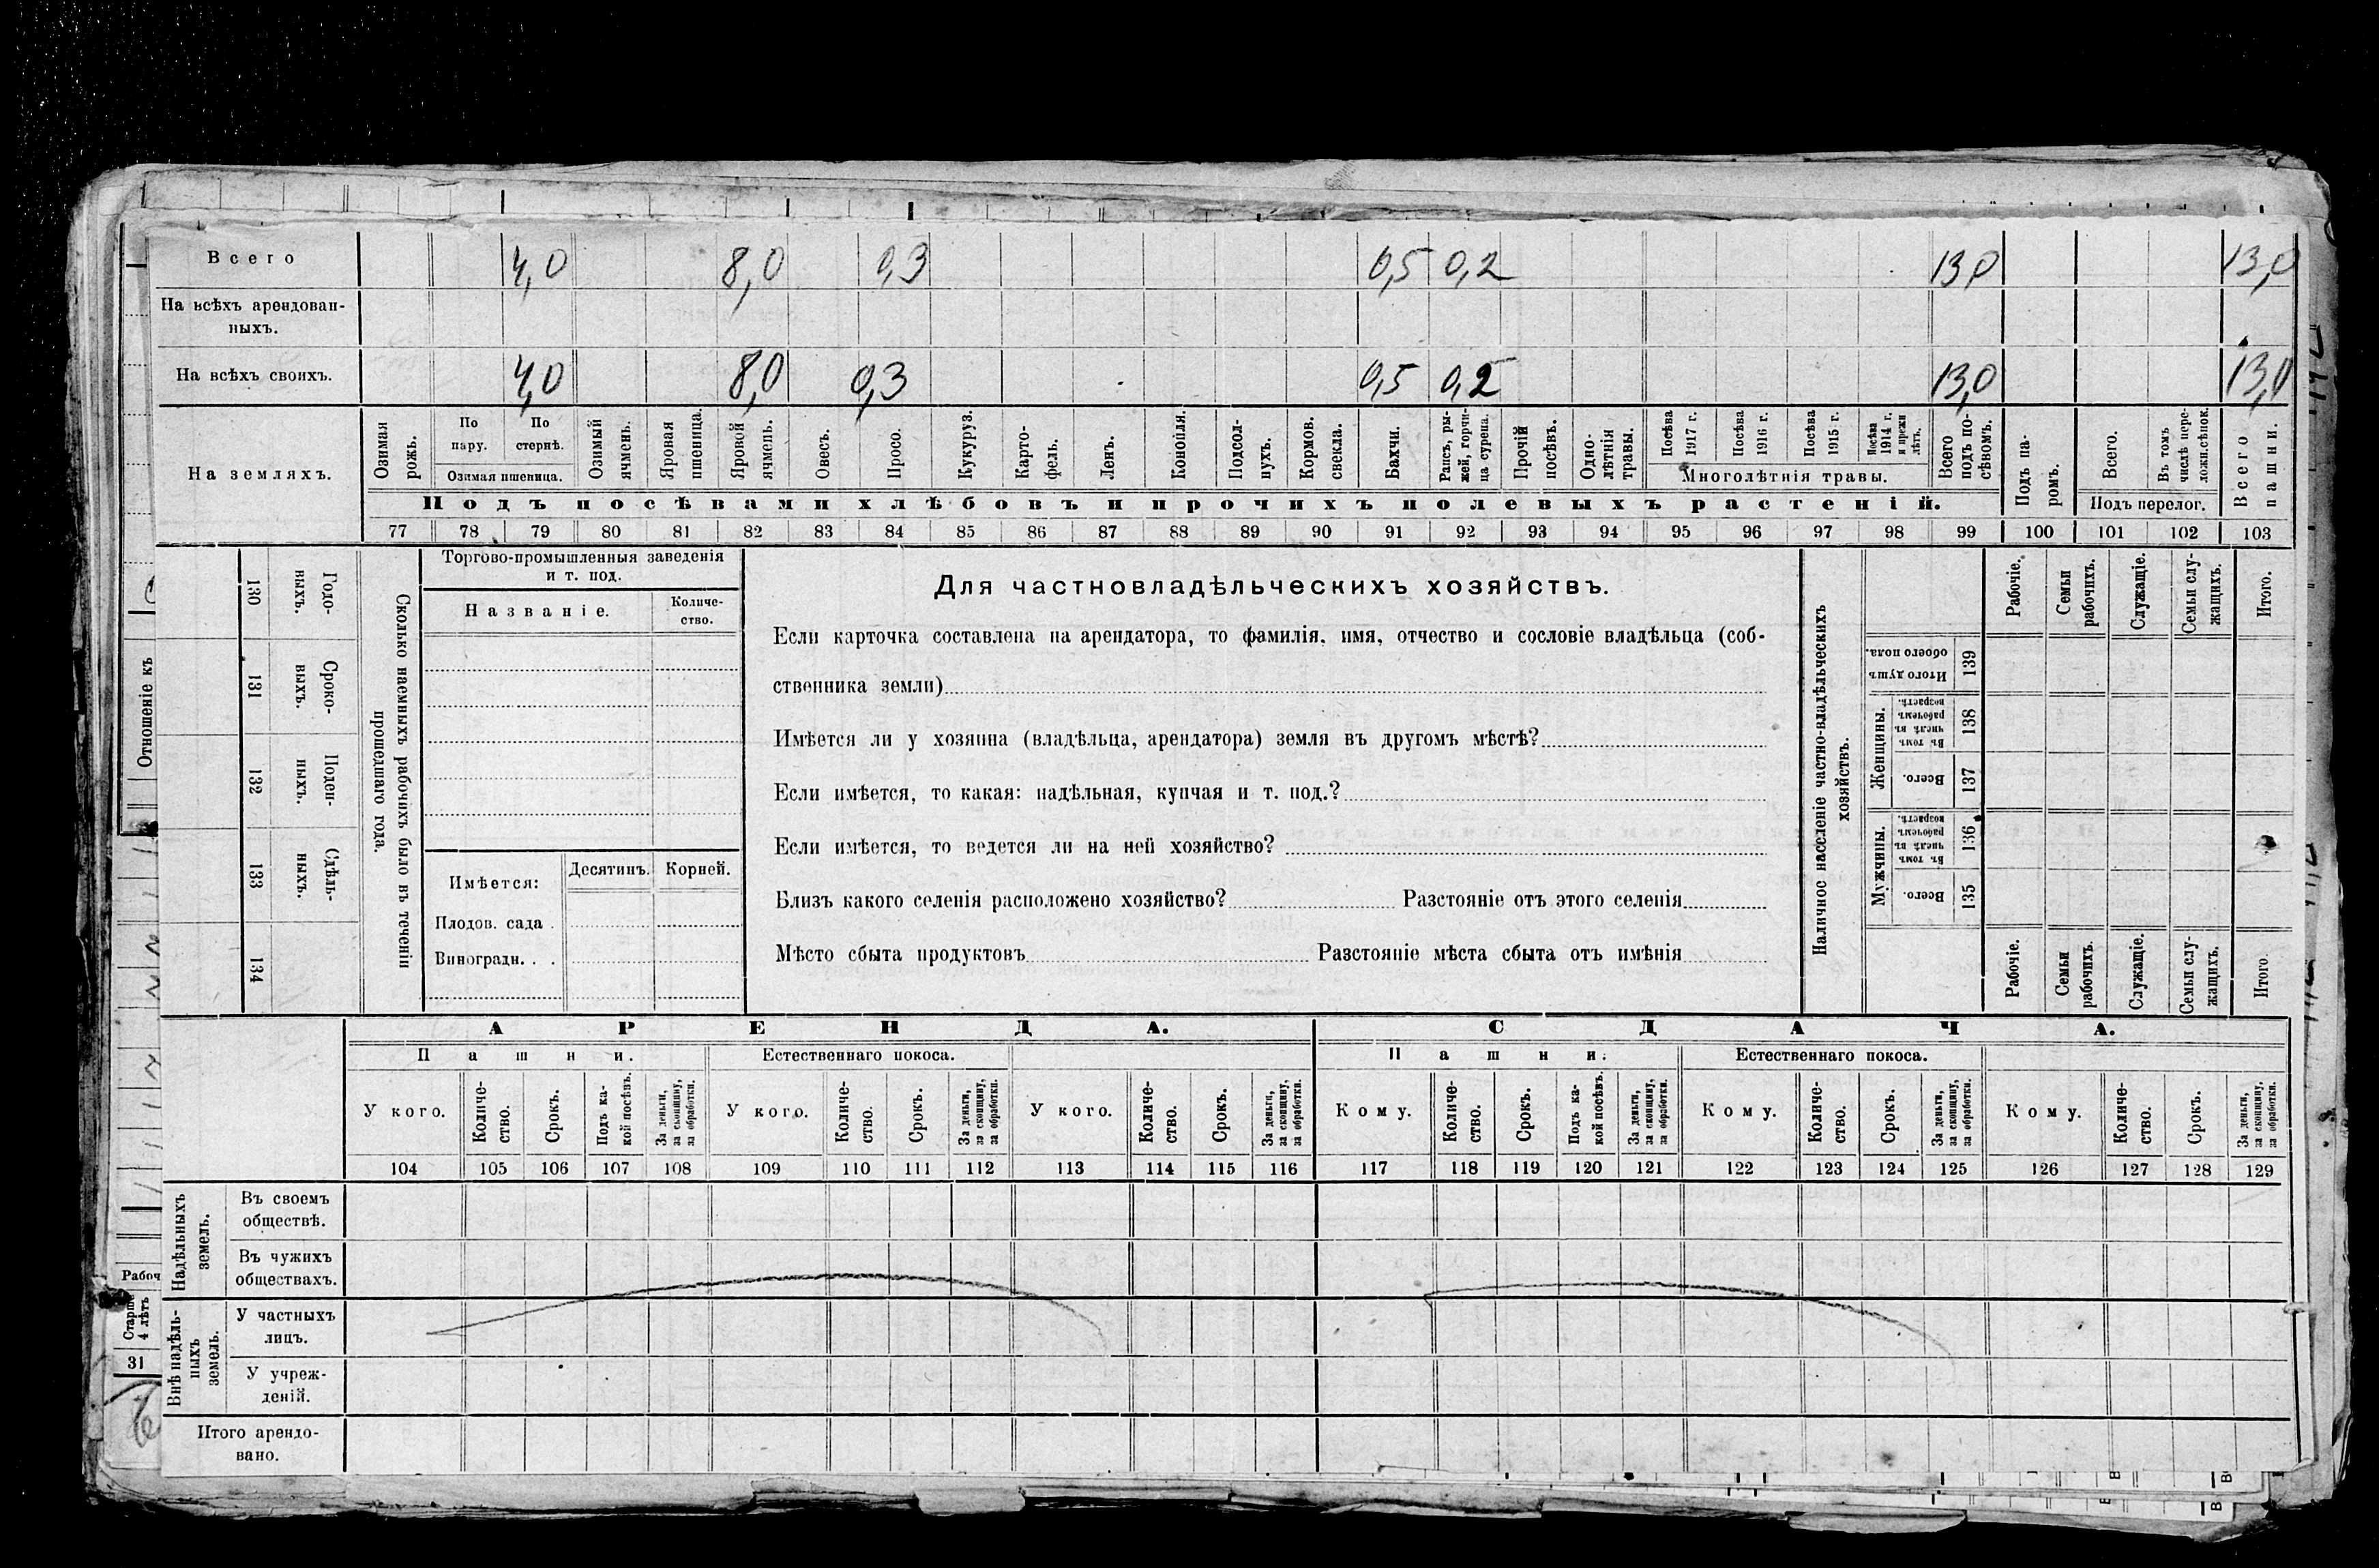 Всего 4,0 8,0 0,3 0,5 0,2 13,0 13,0
На всѣхъ арендован-
ныхъ.
На всѣхъ своихъ. 4,0 8,0 0,3 0,5 0,2 13,0 13,0
На земляхъ.
Озимая рожь.
По пару.
По стернѣ.
Озимая пшеница.
Озимый ячмень.
Яровая пшеница.
Яровой ячмень.
Овесъ.
Просо.
Кукуруз.
Карто-
фель.
Ленъ.
Конопля.
Подсол-
нухъ.
Кормов. свекла.
Бахчи.
Рапсъ, ры-
жей, горчи-
ца сурепа.
Прочій посѣвъ.
Одно-
лѣтнія травы.
Посѣва 1917 г.
Посѣва 1916 г.
Посѣва 1915 г.
Посѣва 1914 г. и прежн лѣтъ.
Многолѣтнія травы.
Всего подъ по-
сѣвомъ.
Подъ па-
ромъ.
Всего.
Въ томъ числѣ пере-
ложн.сѣнок.
Подъ перелог.
Всего пашни.
Подъ посѣвами хлѣбовъ и прочихъ полевыхъ растеній.
77 78 79 80 81 82 83 84 85 86 87 88 89 90 91 92 93 94 95 96 97 98 99 100 101 102 103
Сколько наемныхъ рабочихъ было въ теченіи
прошедшаго года.
Годо-
выхъ.
130
Сроко-
выхъ.
131
Поден-
ныхъ.
132
Сдѣль-
ныхъ.
133
134
Торгово-промышленныя заведенія
и т. под.
Названіе.
Количе-
ство.
Имѣется:
Десятинъ.
Корней.
Плодов. сада .
Виноградн. . .
Для частновладѣльческихъ хозяйствъ.
Если карточка составлена на арендатора, то фамилія, имя, отчество и сословіе владѣльца (соб-
ственника земли)
Имѣется ли у хозяина (владѣльца, арендатора) земля въ другомъ мѣстѣ?
Если имѣется, то какая: надѣльная, купчая и т. под.?
Если имѣется, то ведется ли на ней хозяйство?
Близъ какого селенія расположено хозяйство? Разстояніе отъ этого селенія
Мѣсто сбыта продуктовъ Разстояніе мѣста сбыта отъ имѣнія
Наличное населеніе частно-владѣльческихъ
хозяйствъ.
Рабочіе.
Семьи рабочихъ.
Служащіе.
Семьи слу-
жащихъ.
Итого.
Итого душъ
обоего пола.
139
Женщины.
Въ томъ числѣ въ рабочемъ возрастѣ.
138
Всего.
137
Мужчины.
Въ томъ числѣ въ рабочемъ возрастѣ.
136
Всего.
135
Рабочіе.
Семьи рабочихъ.
Служащіе.
Семьи слу-
жащихъ.
Итого.
АРЕНДА. СДАЧА.
Пашни. Естественнаго покоса. Пашни. Естественнаго покоса.
У кого.
Количе-
ство.
Срокъ.
Подъ ка-
кой посѣвъ.
За деньги,
за скопщину,
за обработки.
У кого.
Количе-
ство.
Срокъ.
За деньги,
за скопщину,
за обработки.
У кого.
Количе-
ство.
Срокъ.
За деньги,
за скопщину,
за обработки.
Кому.
Количе-
ство.
Срокъ.
Подъ ка-
кой посѣвъ.
За деньги,
за скопщину,
за обработки.
Кому.
Количе-
ство.
Срокъ.
За деньги,
за скопщину,
за обработки.
Кому.
Количе-
ство.
Срокъ.
За деньги,
за скопщину,
за обработки.
104 105 106 107 108 109 110 111 112 113 114 115 116 117 118 119 120 121 122 123 124 125 126 127 128 129
Надѣльныхъ
земель.
Въ своемъ
обществѣ.
Въ чужихъ
обществахъ.
Внѣ надѣль-
ныхъ
земель.
У частныхъ
лицъ.
У учреж-
деній.
Итого арендо-
вано.
Отношеніе къ
Рабоч
Старше
4 лѣтъ
31